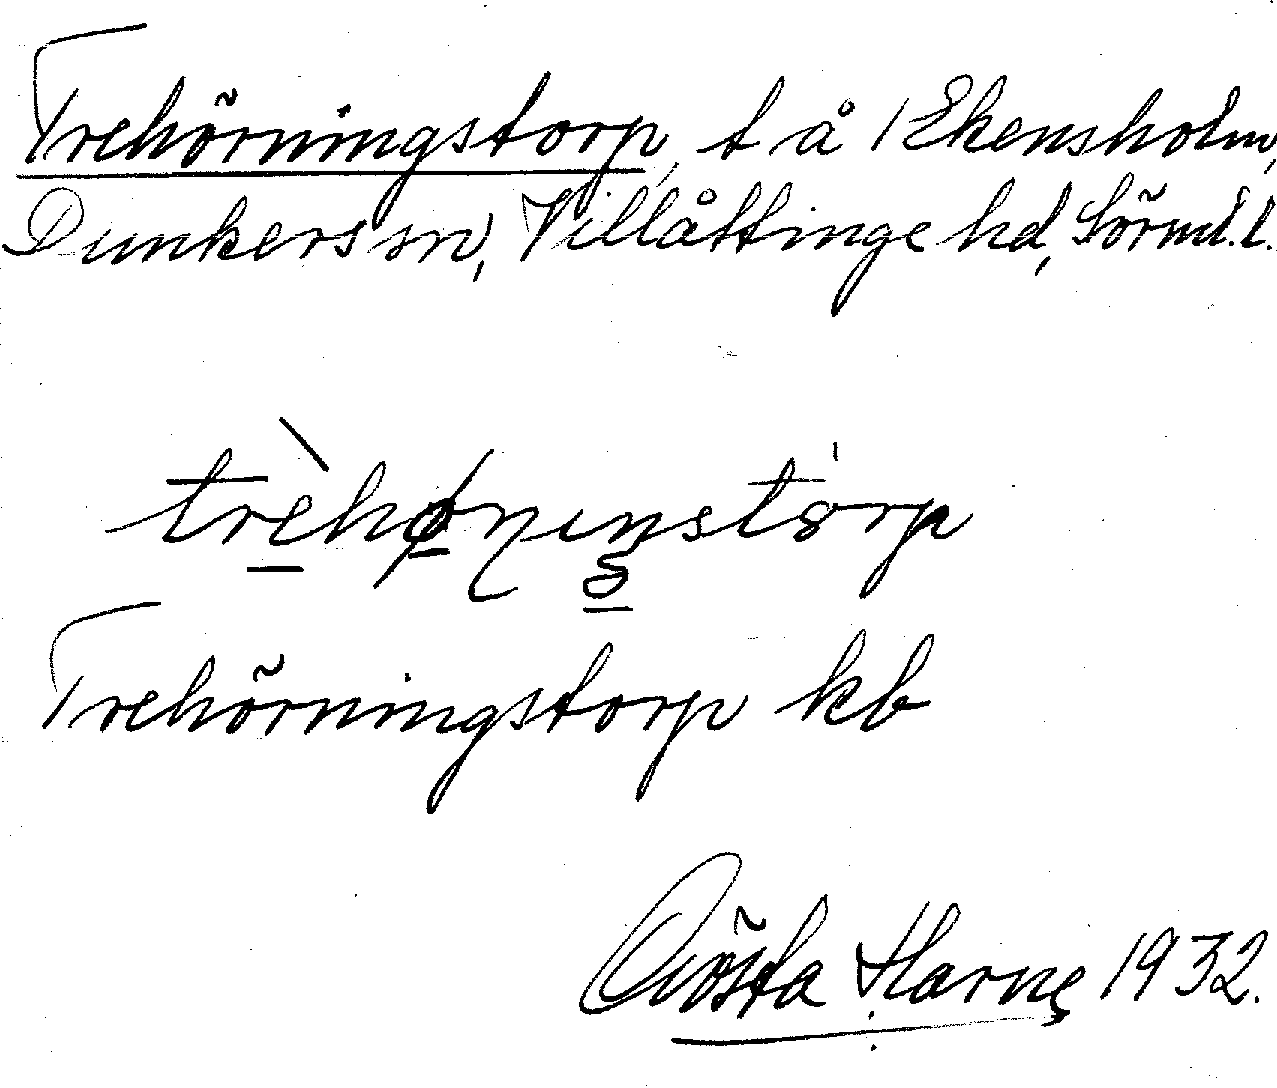 Trehörningstorp, t å 1 Ekensholm,
Dunkers sn, Villåttinge hd, Sörml. l.
Trehörningstorp kb
Gösta Harne 1932.